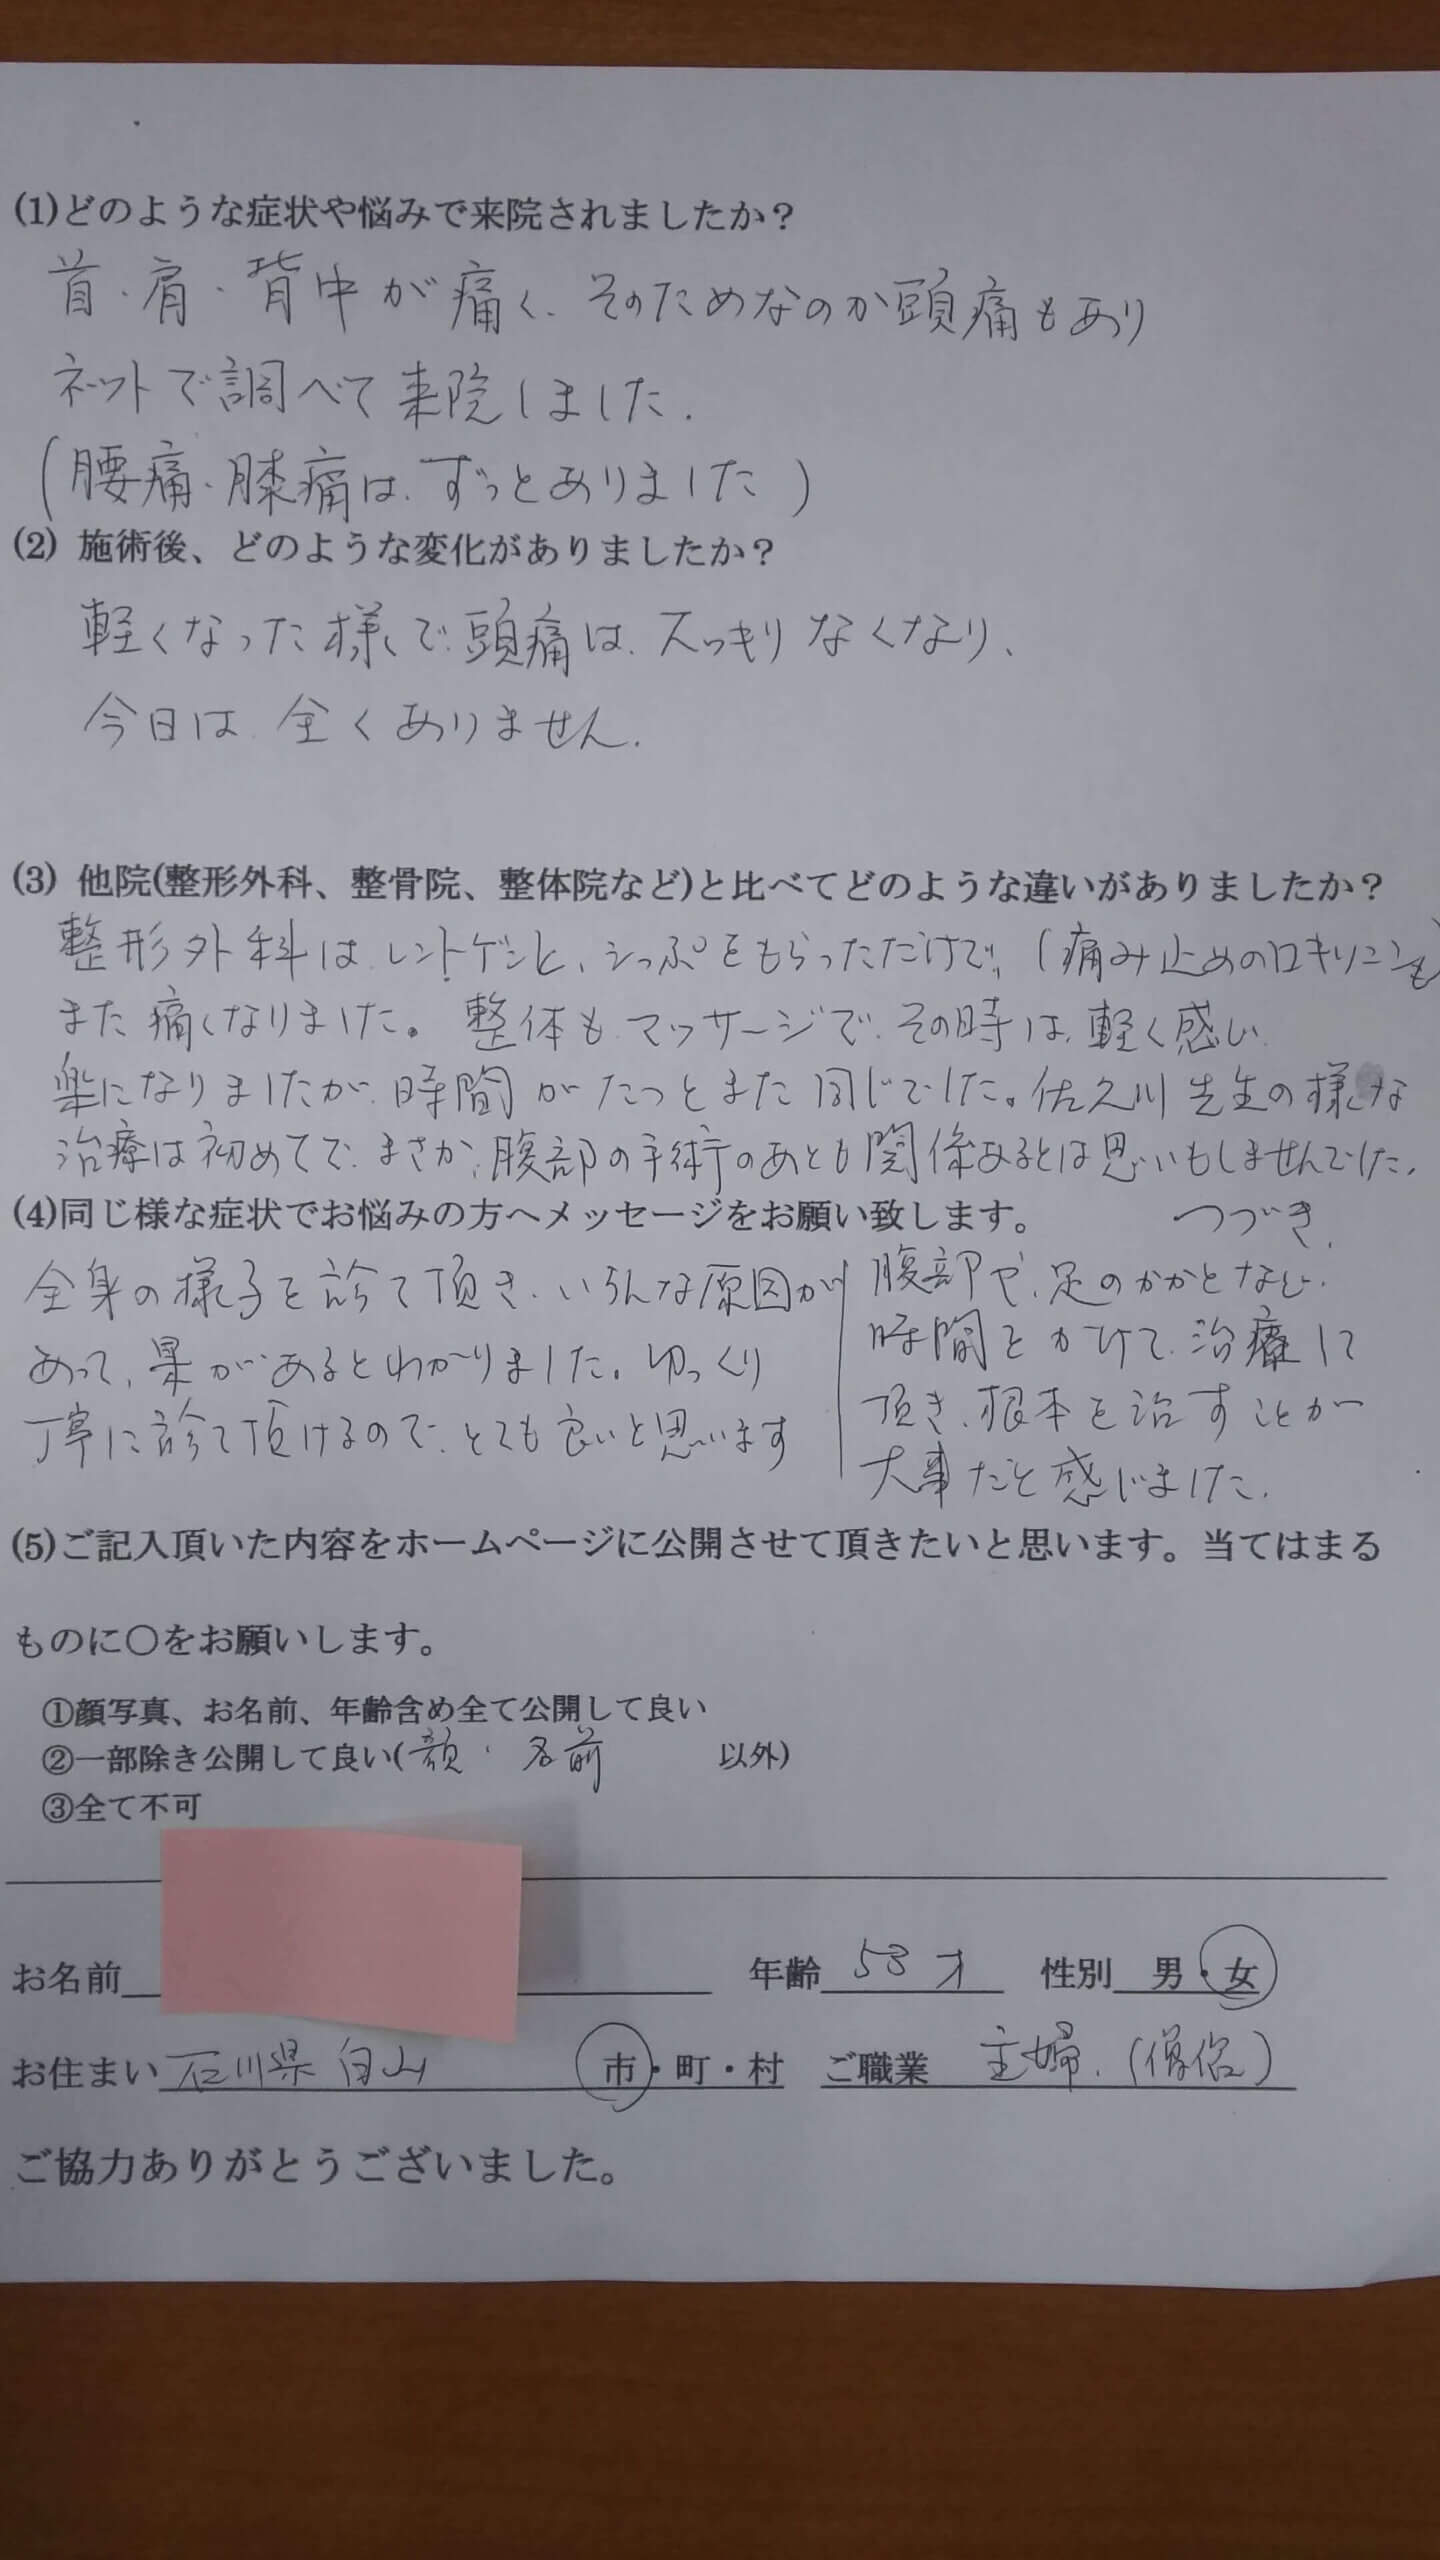 (1)どのような症状や悩みで来院されましたか？
首・肩・背中が痛く、そのためなのか頭痛もあり
ネットで調べて来院しました。
(腰痛・膝痛は、ずっとありました)
(2) 施術後、どのような変化がありましたか？
軽くなった様で、頭痛は、スッキリなくなり、
今日は、全くありません。
(3) 他院(整形外科、整骨院、整体院など)と比べてどのような違いがありましたか？
整形外科は、レントゲンと、シップをもらっただけで、(痛み止めのロキソニンも)
また痛くなりました。整体も、マッサージで、その時は、軽く感じ、
楽になりましたが、時間がたつとまた同じでした。佐久川先生の様な
治療は初めてで、まさか、腹部の手術のあとも関係あるとは思いもしませんでした。
(4)同じ様な症状でお悩みの方へメッセージをお願い致します。
全身の様子を診て頂き、いろんな原因が
あって、果があるとわかりました。ゆっくり
丁寧に診て頂けるので、とても良いと思います
つづき、
腹部や、足のかかとなど、
時間をかけて、治療して
頂き、根本を治すことが
大事だと感じました。
(5)ご記入頂いた内容をホームページに公開させて頂きたいと思います。当てはまる
ものに〇をお願いします。
①顔写真、お名前、年齢含め全て公開して良い
②一部除き公開して良い(顔・名前 以外)
③全て不可
お名前 年齢 53才 性別 男・女
お住まい 石川県白山 市・町・村 ご職業 主婦、(僧侶)
ご協力ありがとうございました。